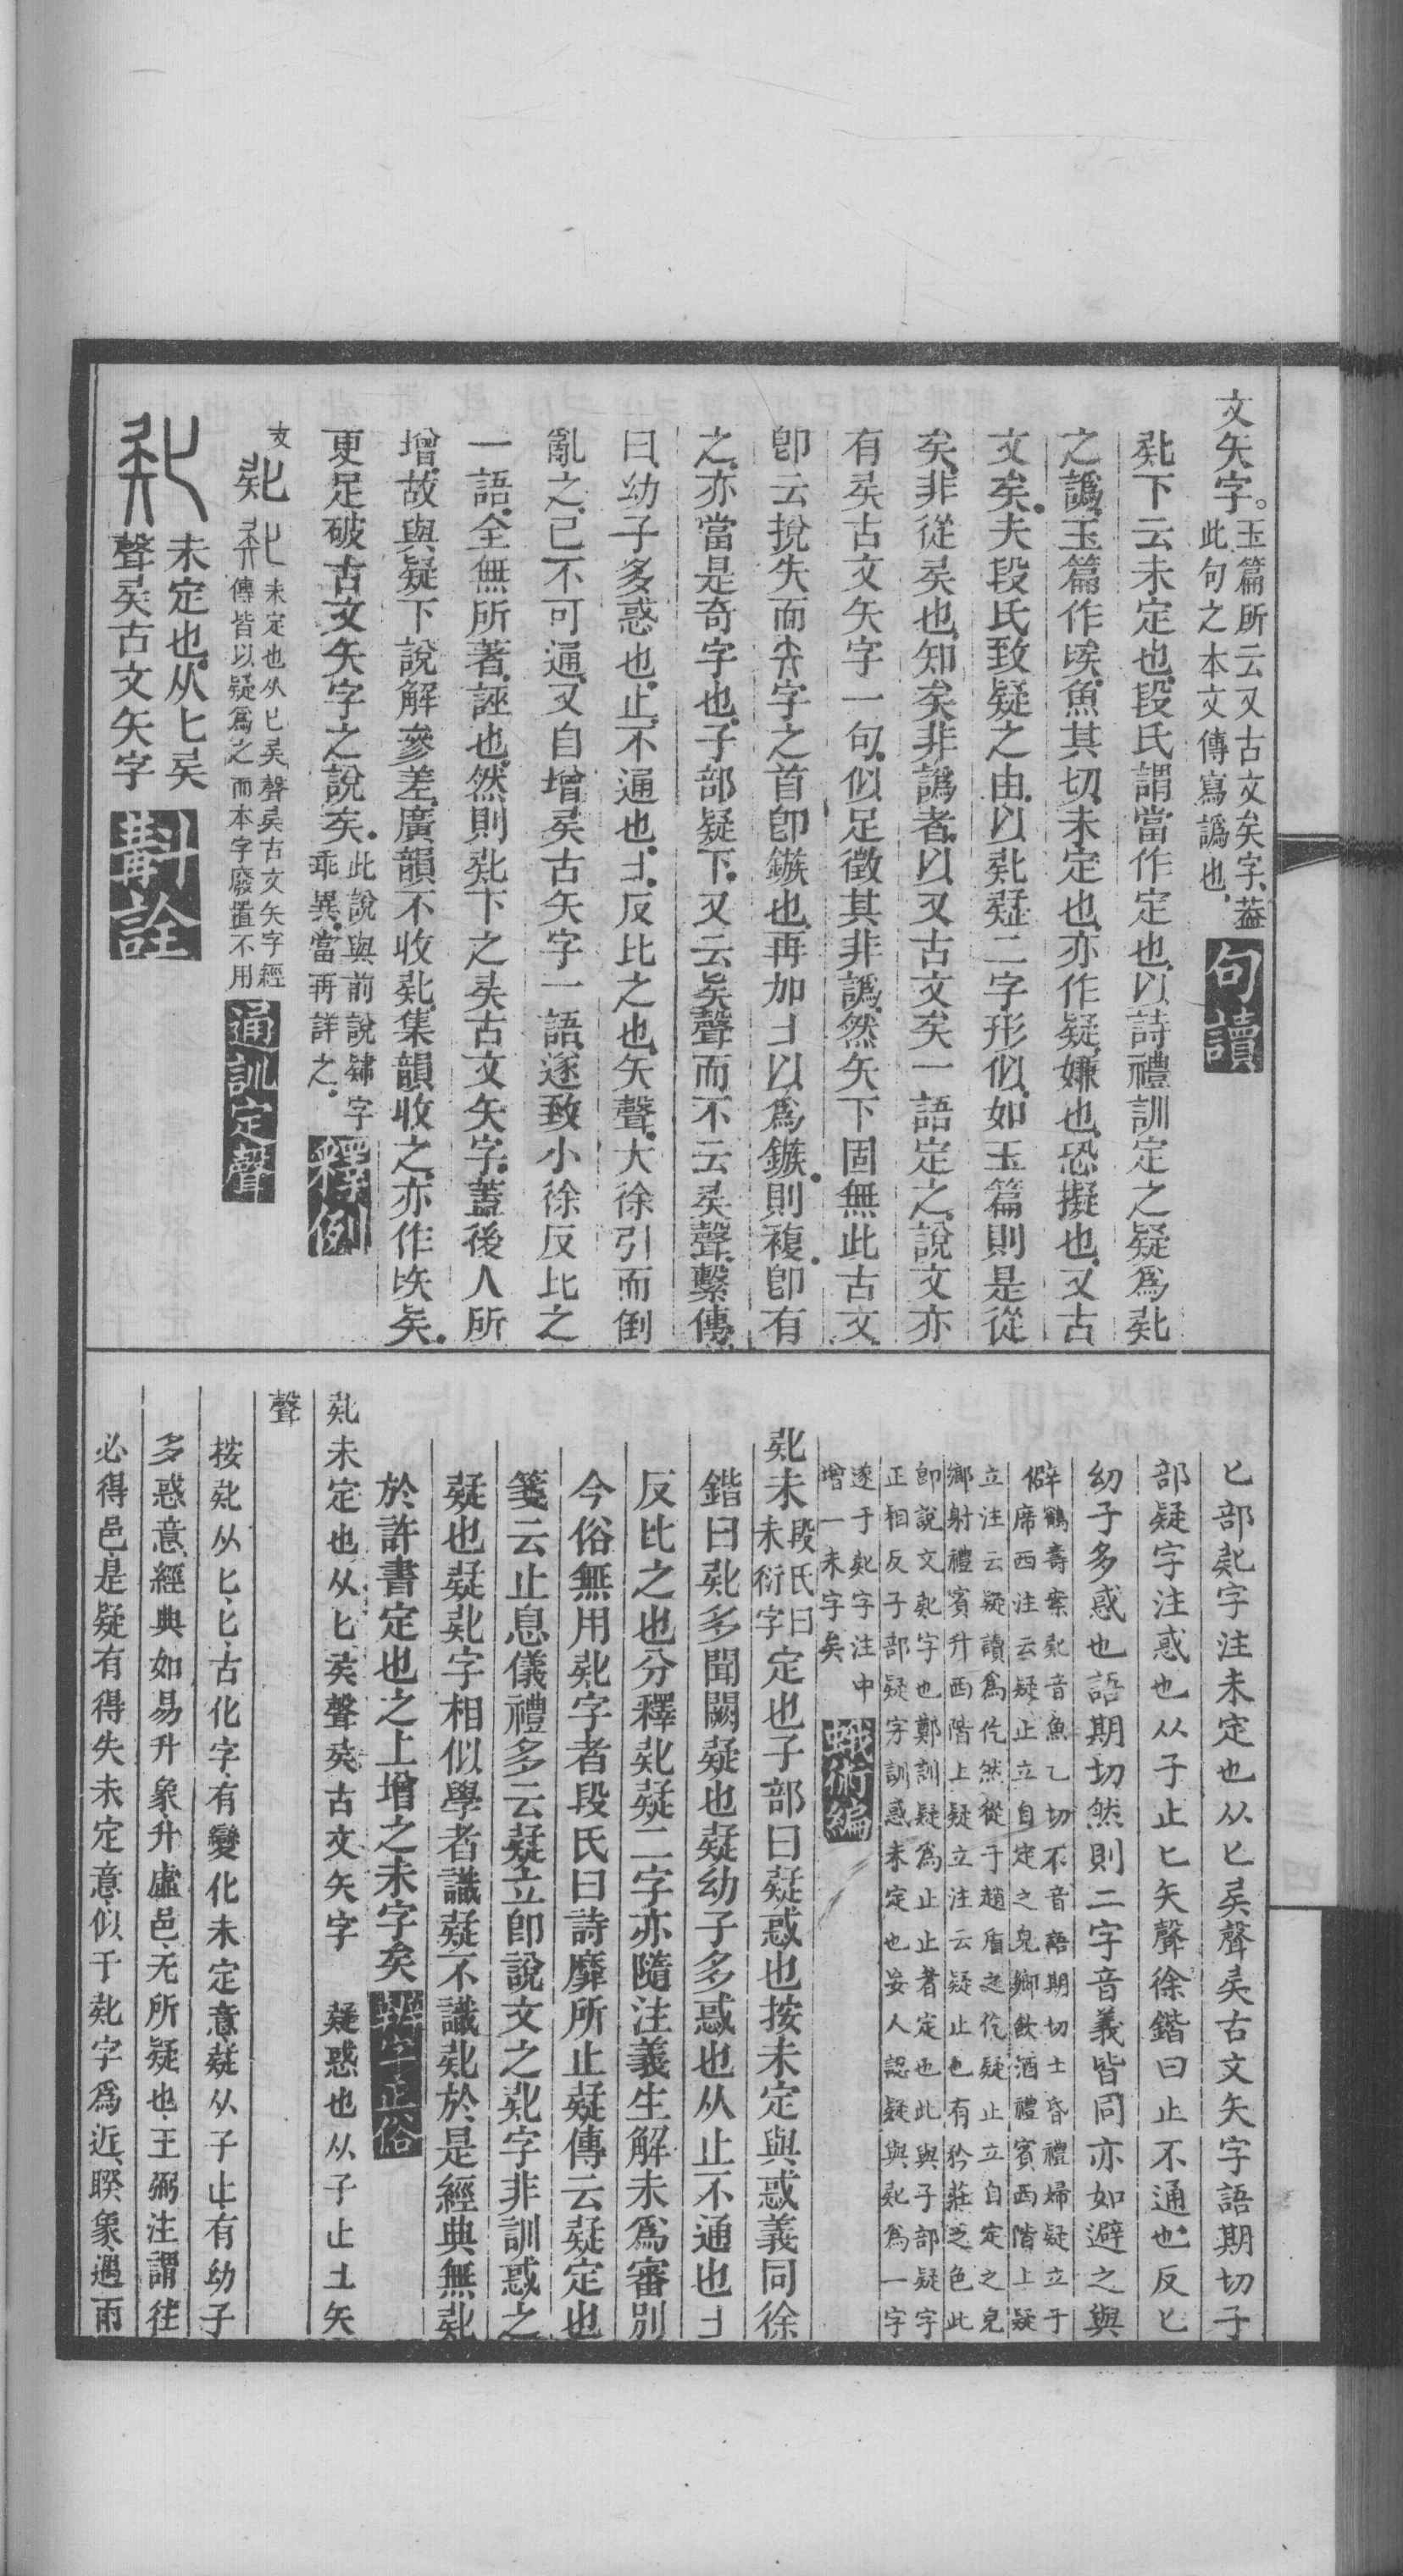 文矢字。玉篇所云又古文矣字、葢
此句之本文傳寫譌也、
句讀
𠤗下云未定也、段氏謂當作定也、以詩禮訓定之疑爲𠤗
之譌、玉篇作㠢、魚其切、未定也、亦作疑、嫌也、恐擬也、又古
文矣、夫段氏致疑之由、以𠤗疑二字形似、如玉篇則是從
矣、非從𠤕也、知矣非譌者、以又古文矣一語定之、說文亦
有𠤕古文矢字一句、似足徵其非譌、然矢下固無此古文
卽云挩失而字之首卽鏃也、再加以爲鏃、則複、卽有
之、亦當是奇字也、子部疑下、又云矣聲而不云𠤕聲、繫傳
曰、幼子多惑也、止、不通也、反比之也、矢聲、大徐引而倒
亂之、已不可通、又自增𠤕古矢字一語、遂致小徐反比之
一語、全無所著、誣也、然則𠤗下之𠤕古文矢字、蓋後人所
增、故與疑下說解參差、廣韻不收𠤗、集韻收之、亦作㠢矣、
更足破古文矢字之說矣、此說與前說肄字
乖異、當再詳之、
釋例
文
𠤗 未定也从匕𠤕聲𠤕古文矢字經
傳皆以疑爲之而本字廢置不用
通訓定聲
未定也从匕𠤕
聲𠤕古文矢字
斠詮
匕部𠤗字注未定也从匕𠤕聲𠤕古文矢字語期切子
部疑字注惑也从子止匕矢聲徐鍇曰止不通也反匕
幼子多惑也語期切然則二字音義皆同亦如避之與
僻鶴壽案𠤗音魚乙切不音語期切士昏禮婦疑立于
席西注云疑止立自定之皃鄉飲酒禮賓西階上疑
立注云疑讀爲仡然從于趙盾之仡疑止立自定之皃
鄉射禮賓升西階上疑立注云疑止也有矜莊之色此
卽說文𠤗字也鄭訓疑爲止止者定也此與子部疑字
正相反子部疑字訓惑未定也妄人認疑與𠤗爲一字
遂于𠤗字注中
增一未字矣
蛾術編
𠤗未段氏曰
未衍字定也子部曰疑惑也按未定與惑義同徐
鍇曰𠤗多聞闕疑也疑幼子多惑也从止不通也
反比之也分釋𠤗疑二字亦隨注義生解未爲審別
今俗無用𠤗字者段氏曰詩靡所止疑傳云疑定也
箋云止息儀禮多云疑立卽說文之𠤗字非訓惑之
疑也疑𠤗字相似學者識疑不識𠤗於是經典無𠤗
於許書定也之上增之未字矣
正俗
𠤗未定也从匕𠤕聲𠤕古文矢字 疑惑也从子止矢
聲
按𠤗从匕、匕、古化字、有變化未定意疑从子止、有幼子
多惑意、經典如易升象、升虛邑、无所疑也、王弼注謂往
必得邑、是疑有得失未定意、似于𠤗字爲近、睽象、遇雨